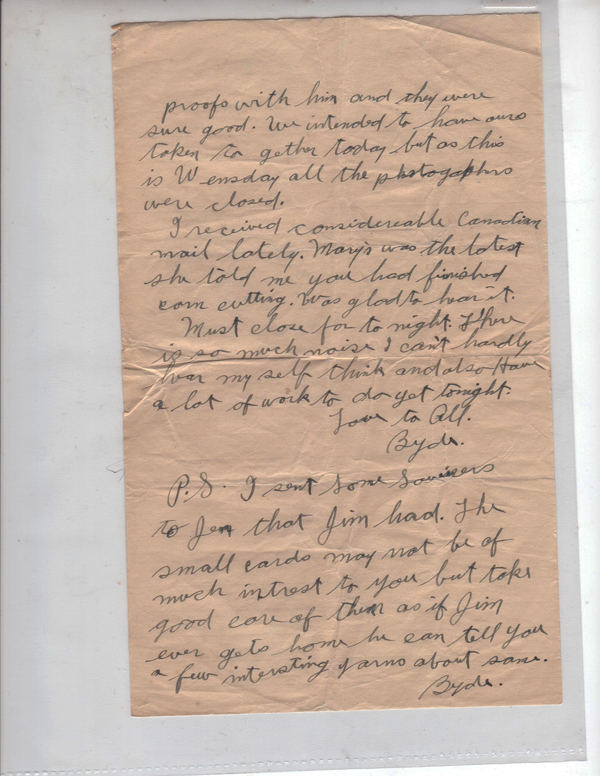 proofs with him and they were
sure good. We intended to have ours
taken to gether today but as this
is Wensday all the photographs
were closed.
I received considereable Canadian
mail lately. Mary's was the latest
she told me you had finished
corn cutting. Was glad to hear it.
Must close for to night. There
is so much noise I can't hardly
hear my self think and also have
a lot of work to do yet tonight.
Love to All.
Byde.
P.S. I sent some
to Jen that Jim had. The
small cards may not be of
much intrest to you but take
good care of them as if Jim
ever gets home he can tell you
a few intersting yarns about same.
Byde.